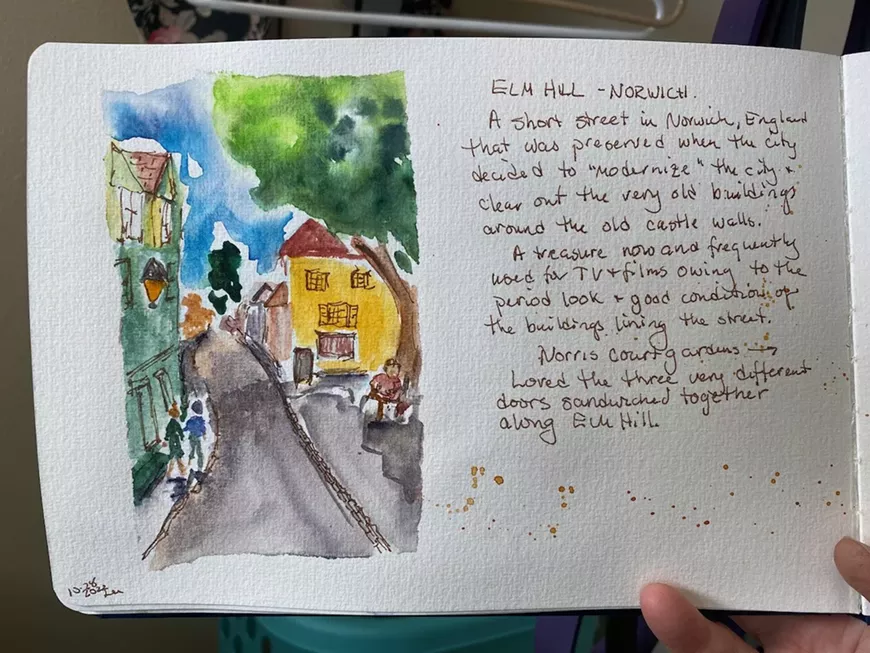 ELM HILL - NORWICH.
A short street in Norwich, England
that was preserved when the city
decided to "modernize" the city +
clear out the very old buildings
around the old castle walls.
A treasure now and frequently
used for TV + films owing to the
period look + good condition of
the buildings lining the street.
Norris Court gardens →
Loved the three very different
doors sandwiched together
along Elm Hill.
10.28